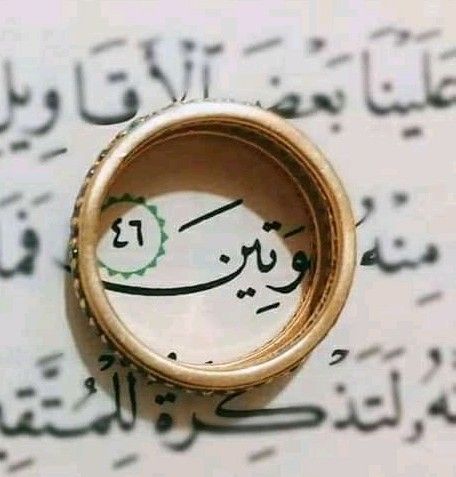 عَلَيْنَا بَعْضَ ٱلْأَقَاوِيلِ
مِنْهُ وَتِينَ ٤٦ فَمَا
لَتَذْكِرَةٌ لِّلْمُتَّقِي